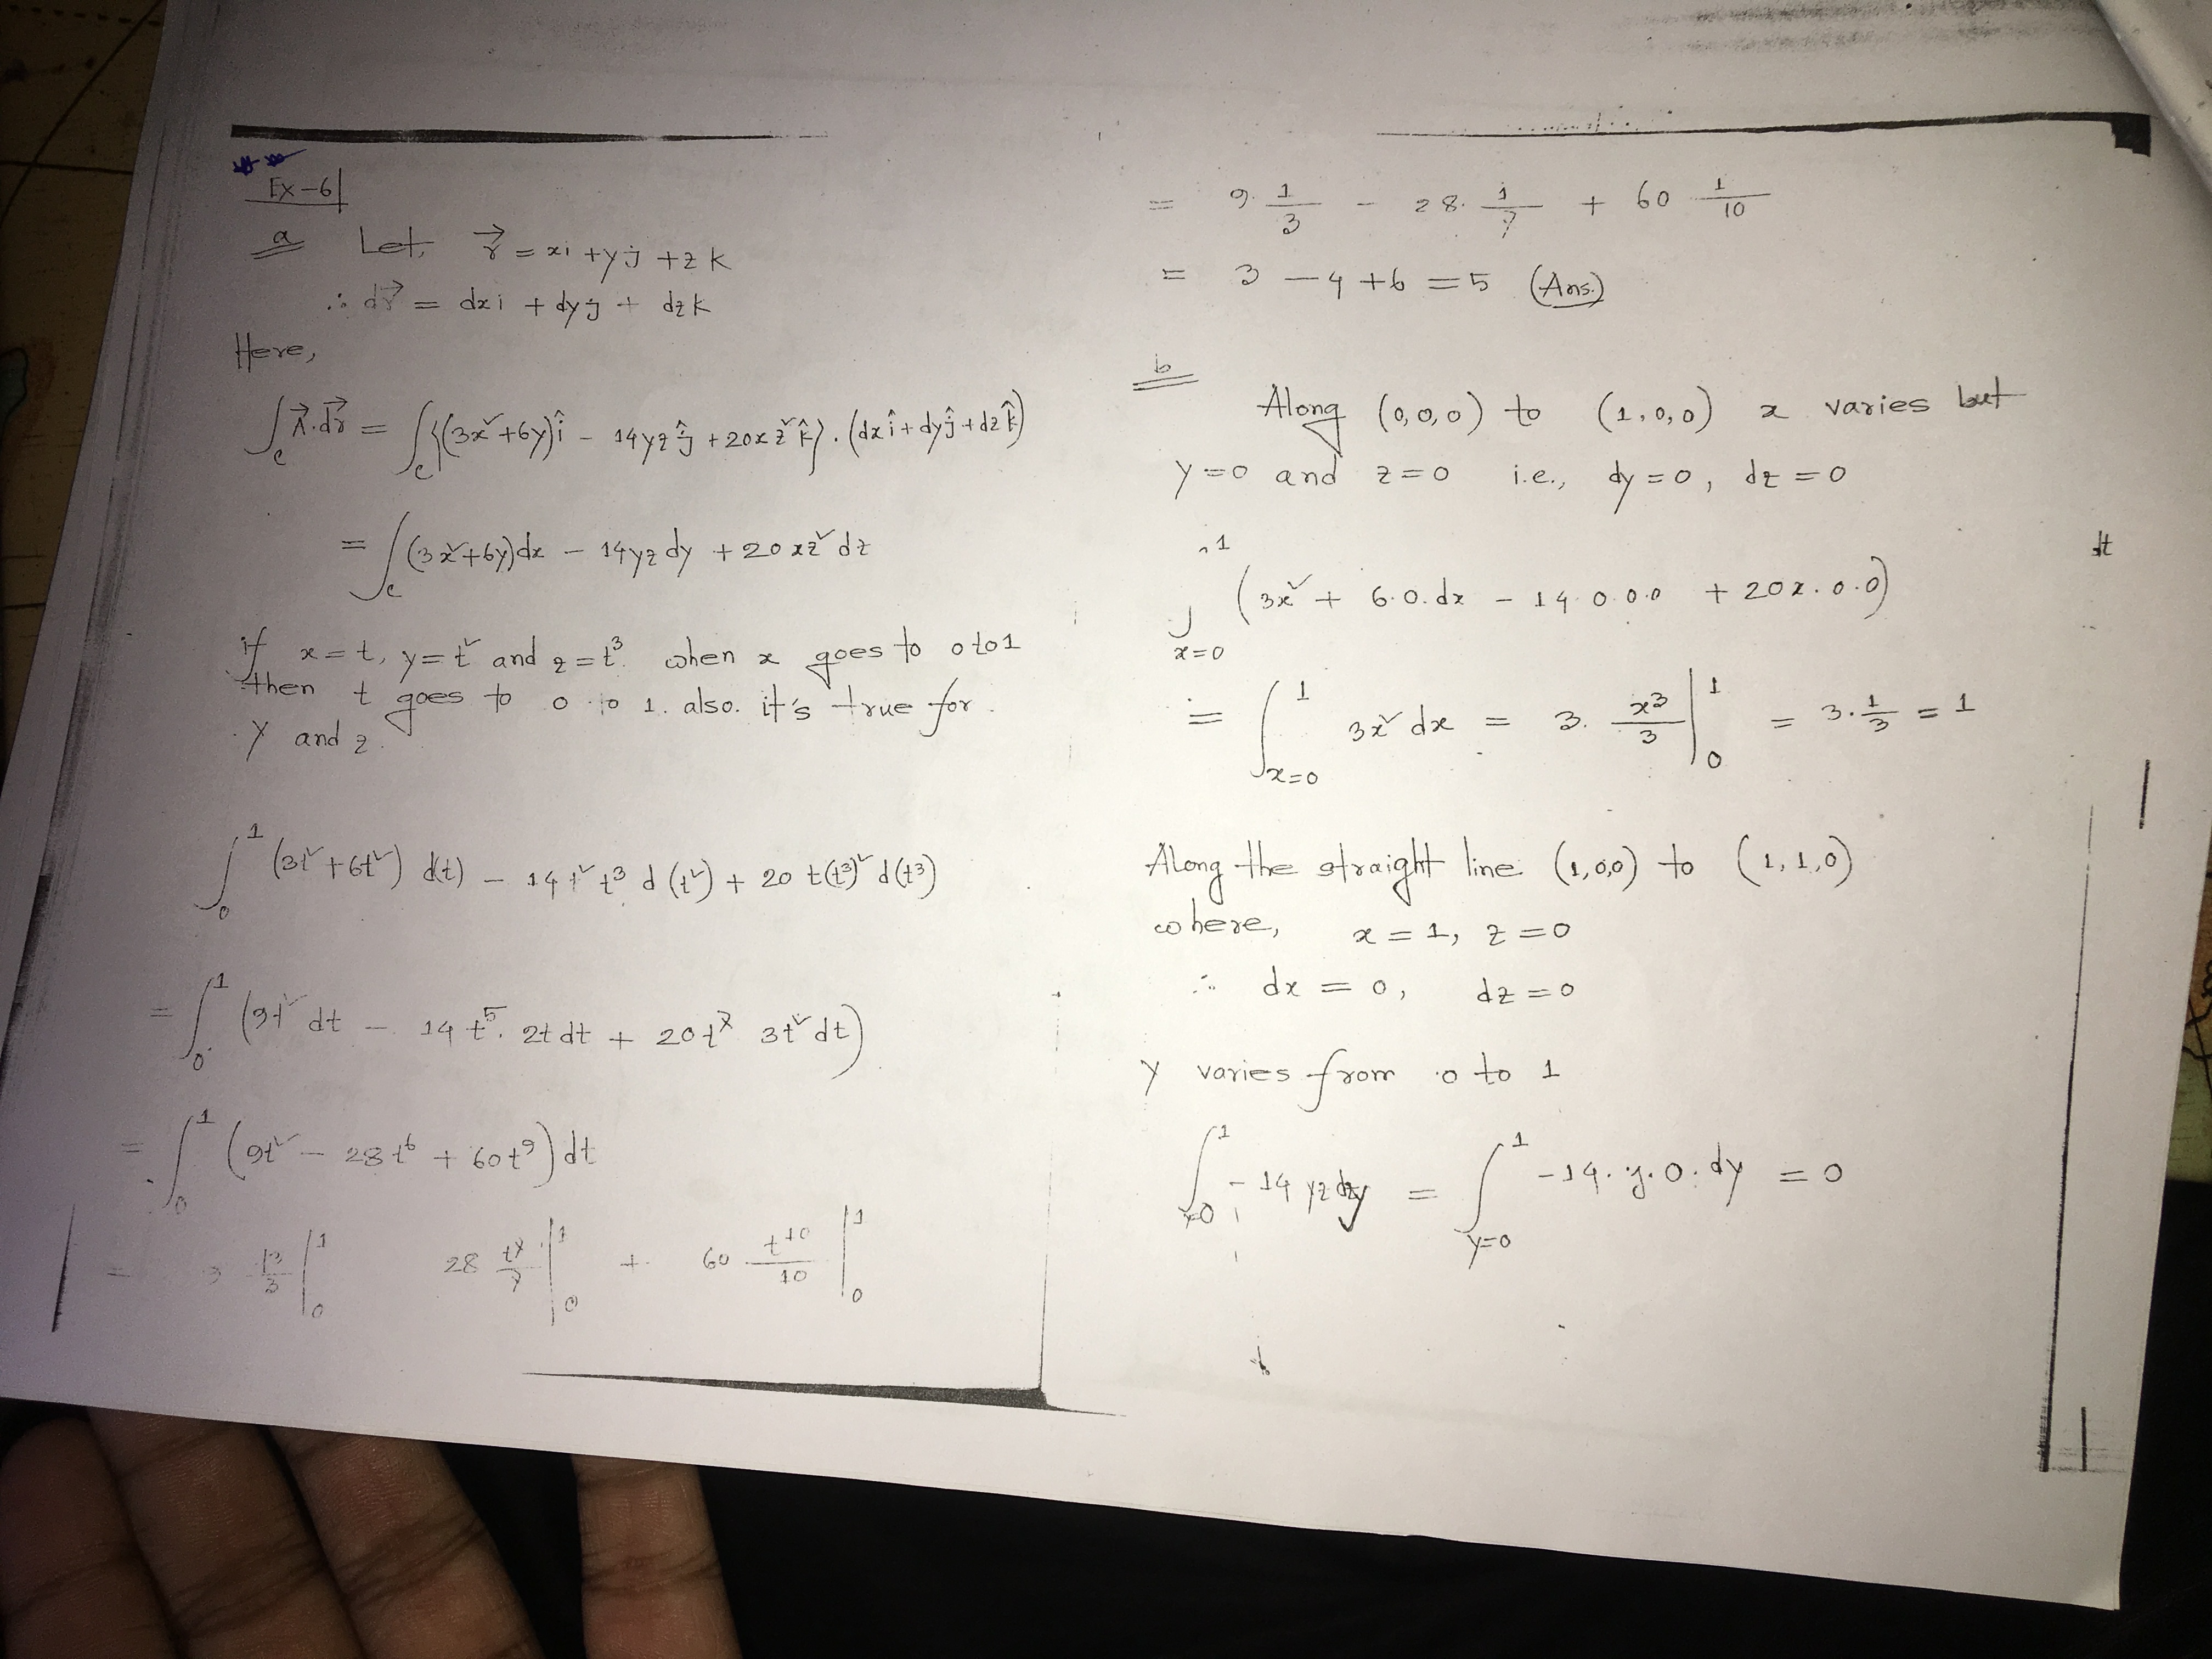 Ex-6
a Let, r⃗ = xi + yj + zk
∴ dr⃗ = dxi + dyj + dzk
Here,
∫_c A⃗.dr⃗ = ∫_c {(3x² + 6y)î - 14yzĵ + 20xz²k̂}.(dxî + dyĵ + dzk̂)
= ∫_c (3x² + 6y)dx - 14yzdy + 20xz²dz
if x = t, y = t² and z = t³. when x goes to 0 to 1
then t goes to 0 to 1. also. it's true for
y and z.
∫_0^1 (3t² + 6t²) d(t) - 14 t² t³ d(t²) + 20 t(t³)² d(t³)
= ∫_0^1 (9t² dt - 14 t⁵. 2t dt + 20t⁷ 3t² dt)
= ∫_0^1 (9t² - 28t⁶ + 60t⁹) dt
= 9 t³/3 |_0^1 28 t⁷/7 |_0^1 + 60 t¹⁰/10 |_0^1
= 9. 1/3 - 28. 1/7 + 60 1/10
= 3 - 4 + 6 = 5 (Ans.)
b
Along (0,0,0) to (1,0,0) x varies but
y = 0 and z = 0 i.e., dy = 0, dz = 0
∫_{x=0}^1 (3x² + 6.0.dx - 14.0.0.0 + 20x.0.0)
= ∫_{x=0}^1 3x² dx = 3. x³/3 |_0^1 = 3.1/3 = 1
Along the straight line (1,0,0) to (1,1,0)
where, x = 1, z = 0
∴ dx = 0, dz = 0
y varies from 0 to 1
∫_{y=0}^1 - 14 yz dy = ∫_{y=0}^1 -14. y. 0. dy = 0
dt